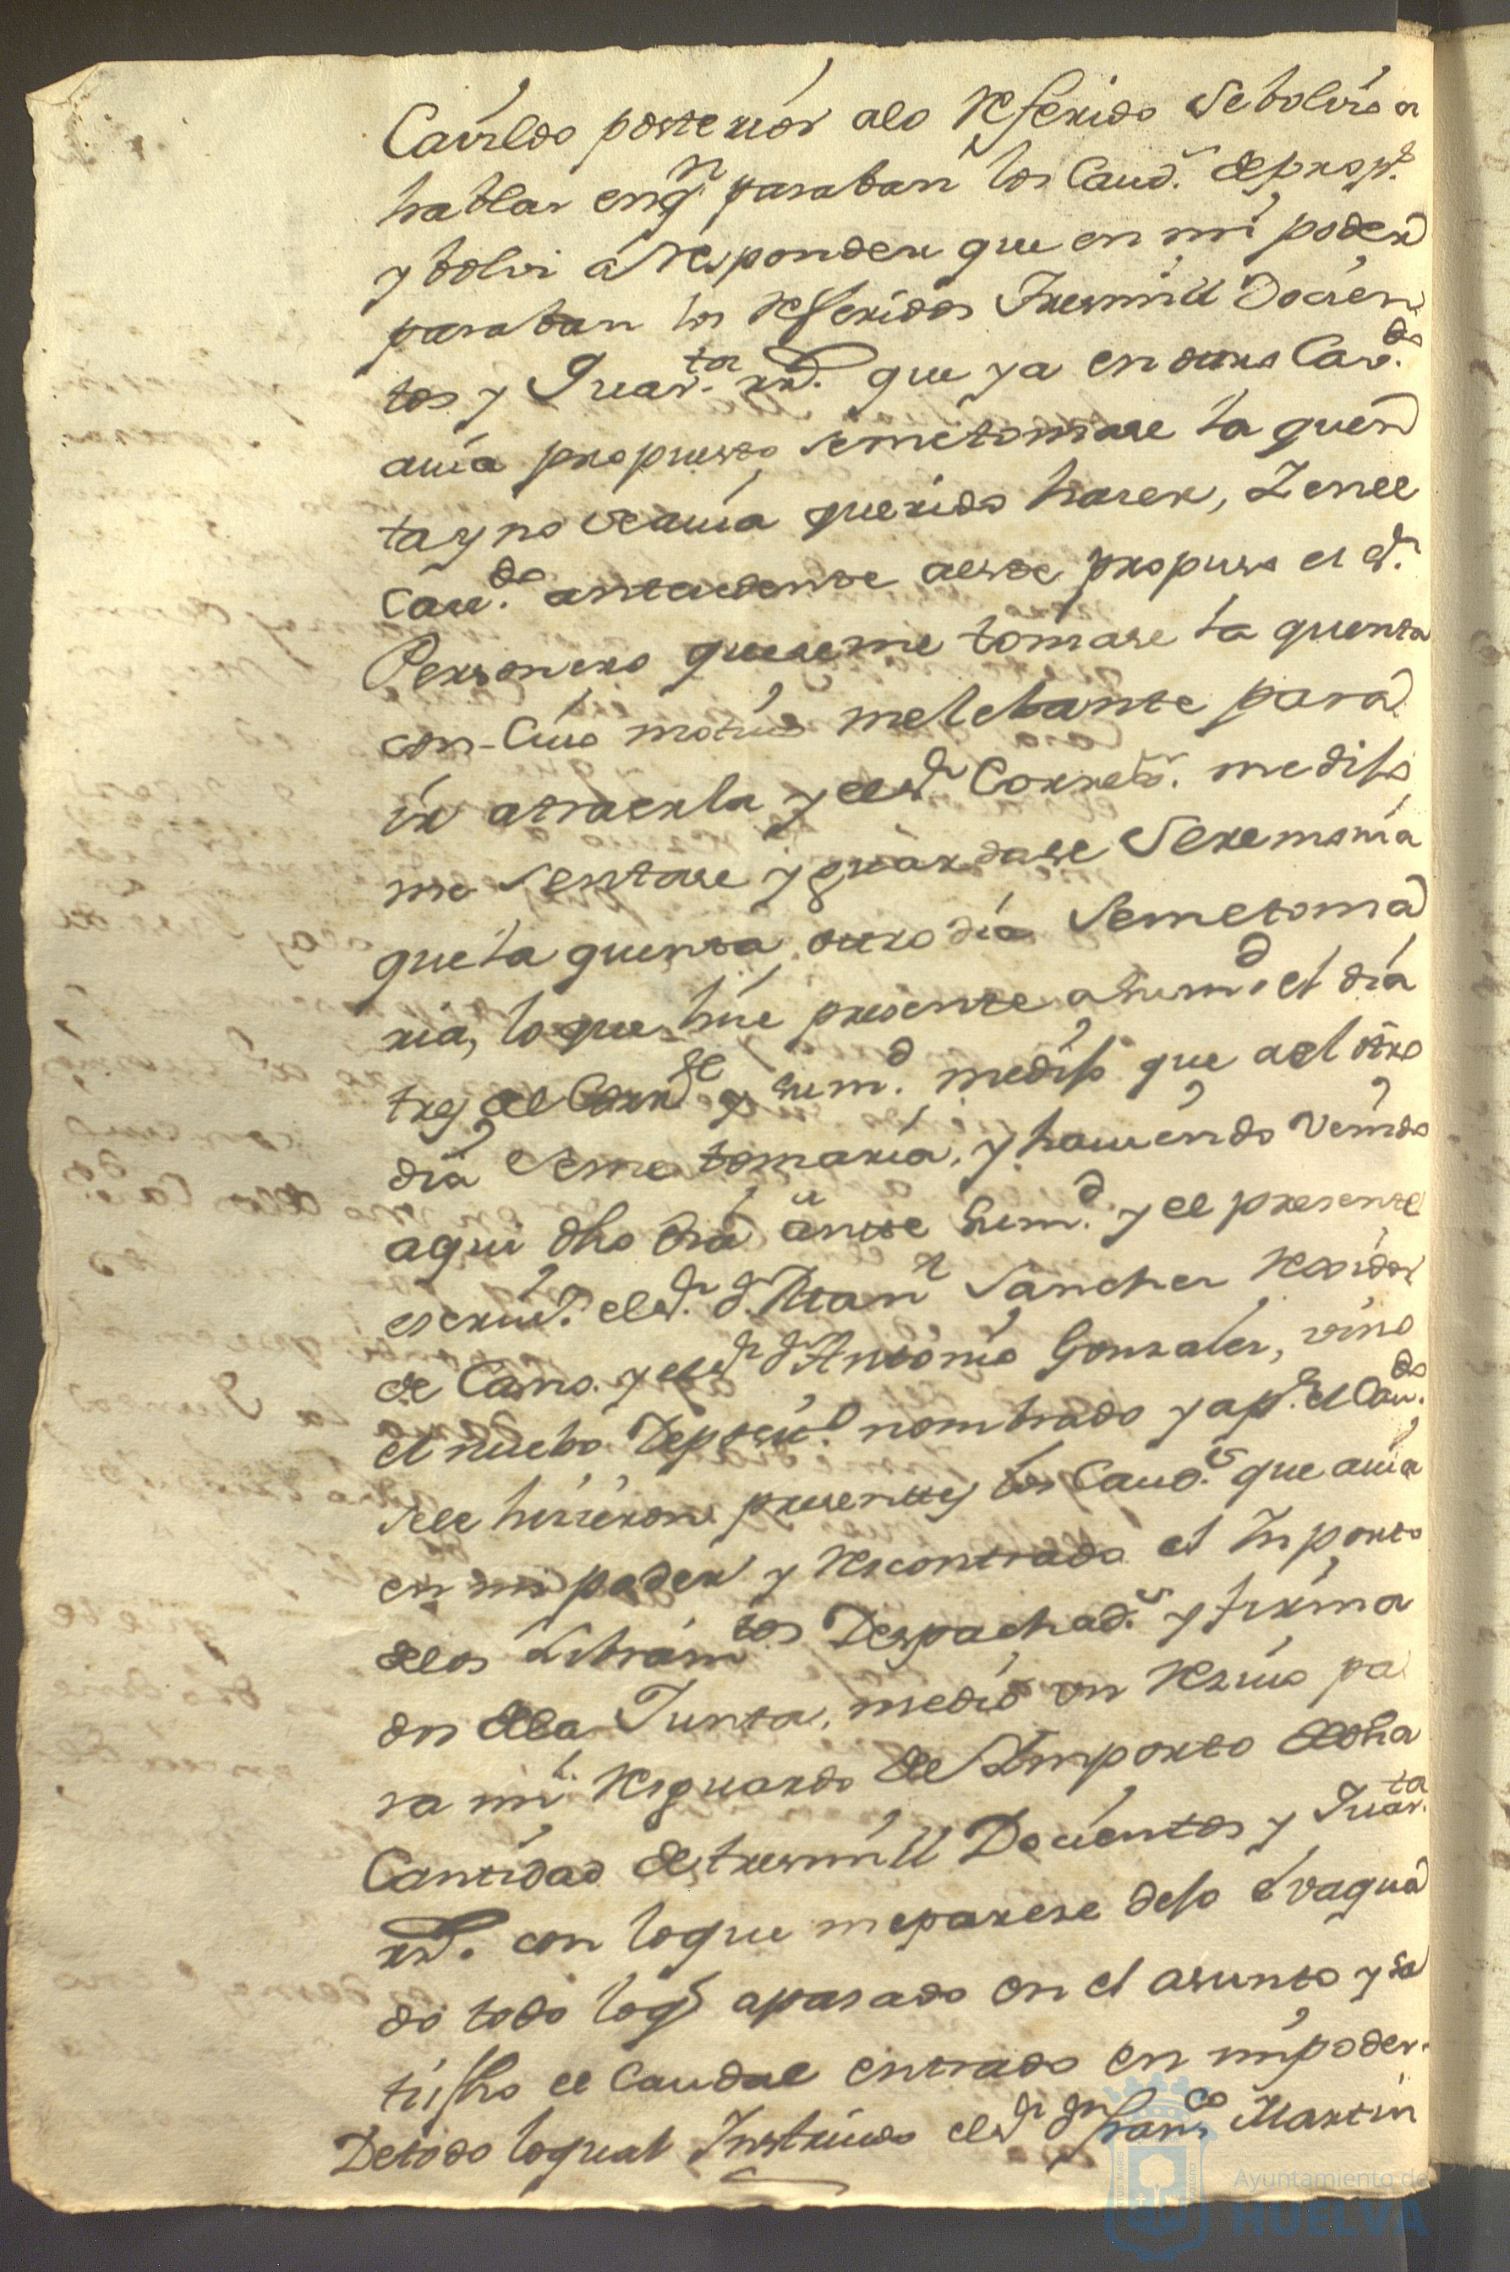 Cavildo posterior alo referido se bolvio a
hablar en qn paraban los Caud.s de prop.s
y bolvi a responder que en mi poder
paraban los referidos tresmill Docien
tos y Quar.ta rr.s que ya en otro Cav.do
avia propuesto se me tomase la quen
ta y no se avia querido haser, Y en el
Cav.do antecedente a este propuso el S.r
Personero que se me tomase la quenta
con cuio motivo me lebante para
ir a traerla y el S.r Corre.or me dijo
me sentase y guardase Seremonia
que la quenta otro dia se me toma
ria, lo que hise presente a su m.d el dia
tres de Corr.te y su m.d me dijo que a el otro
dia se me tomaria, y haviendo venido
aqui dho dia ante su m.d y el presente
escriv.o el S.r d.n Man.l Sanches Rexidor
de Cano y el S.r d.n Antonio Gonzales, vino
el nuebo Deposit.o nombrado y a p.r el Cav.do
se le hisieron presentes los Caud.s que avia
en mi poder y recontrado el Inporto
de los Libram.tos Despachad.s y firma
dos de la Junta, me dio un resivo pa
ra mi resguardo de el Importo de dha
Cantidad de tresmill Docientos y Quar.ta
rr.s con lo que me parese dejo evaqua
do todo lo q.e a pasado en el asunto y sa
tisfho el Caudal entrado en mi poder.
De todo lo qual Instruido el S.r d.n Fran.co Martin
Ayuntamiento de
HUELVA